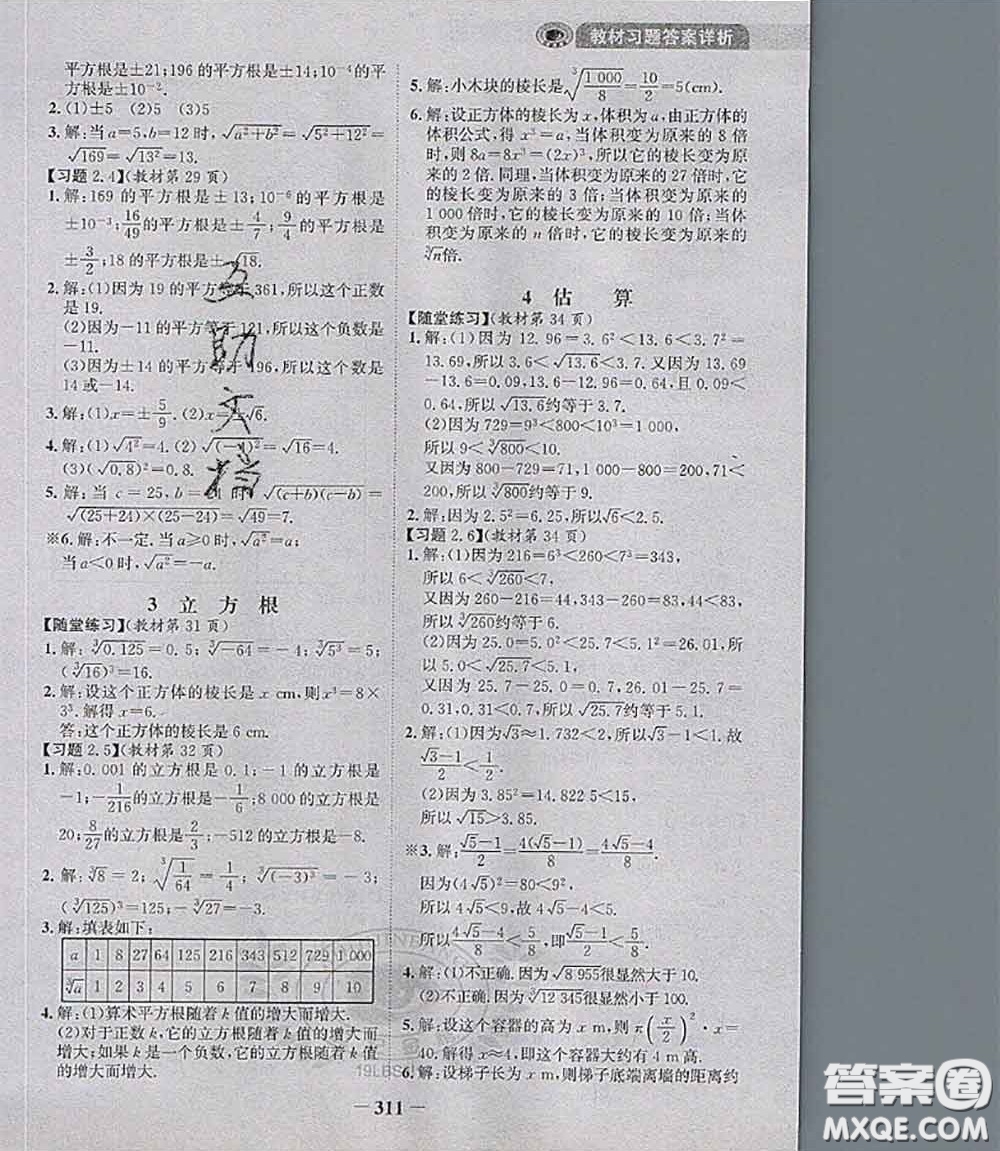 教材习题答案详析
平方根是±21;196的平方根是±14;10⁻⁴的平
方根是±10⁻².
2. (1)±5 (2)5 (3)5
3. 解:当a=5,b=12时,√(a²+b²)=√(5²+12²)=
√169=√13²=13.
【习题2.4】(教材第29页)
1. 解:169的平方根是±13;10⁻⁶的平方根是
±10⁻³;16/49的平方根是±4/7;9/4的平方根是
±3/2;18的平方根是±√18.
2. 解:(1)因为19的平方等于361,所以这个正数
是19.
(2)因为-11的平方等于121,所以这个负数是
-11.
(3)因为±14的平方等于196,所以这个数是
14或-14.
3. 解:(1)x=±5/9. (2)x=±√6.
4. 解:(1)√4²=4. (2)√(-4)²=√16=4.
(3)(√0.8)²=0.8.
5. 解:当c=25,b=24时,√(c+b)(c-b)=
√(25+24)×(25-24)=√49=7.
※6. 解:不一定.当a≥0时,√a²=a;
当a<0时,√a²=-a.
3 立方根
【随堂练习】(教材第31页)
1. 解:∛0.125=0.5;∛-64=-4;∛5³=5;
(∛16)³=16.
2. 解:设这个正方体的棱长是x cm,则x³=8×
3³.解得x=6.
答:这个正方体的棱长是6 cm.
【习题2.5】(教材第32页)
1. 解:0.001的立方根是0.1;-1的立方根是
-1;-1/216的立方根是-1/6;8 000的立方根是
20;8/27的立方根是2/3;-512的立方根是-8.
2. 解:∛8=2;∛(1/64)=1/4;∛(-3)³=-3;
(∛125)³=125;-∛27=-3.
3. 解:填表如下:
a 1 8 27 64 125 216 343 512 729 1 000
∛a 1 2 3 4 5 6 7 8 9 10
4. 解:(1)算术平方根随着k值的增大而增大.
(2)对于正数k,它的立方根随着k值的增大而
增大;如果k是一个负数,它的立方根随着k值
的增大而增大.
5. 解:小木块的棱长是∛(1 000/8)=10/2=5(cm).
6. 解:设正方体的棱长为x,体积为a,由正方体的
体积公式,得x³=a,当体积变为原来的8倍
时,则8a=8x³=(2x)³,所以它的棱长变为原
来的2倍.同理,当体积变为原来的27倍时,它
的棱长变为原来的3倍;当体积变为原来的
1 000倍时,它的棱长变为原来的10倍;当体
积变为原来的n倍时,它的棱长变为原来的
∛n倍.
4 估算
【随堂练习】(教材第34页)
1. 解:(1)因为12.96=3.6²<13.6<3.7²=
13.69,所以3.6<√13.6<3.7.又因为13.69
-13.6=0.09,13.6-12.96=0.64,且0.09<
0.64,所以√13.6约等于3.7.
(2)因为729=9³<800<10³=1 000,
所以9<∛800<10.
又因为1 000-800=200,800-729=71,71
<200,所以∛800约等于9.
2. 解:因为2.5²=6.25,所以√6<2.5.
【习题2.6】(教材第34页)
1. 解:(1)因为216=6³<260<7³=343,
所以6<∛260<7.
又因为260-216=44,343-260=83,44<83,
所以∛260约等于6.
(2)因为25.0=5.0²<25.7<5.1²=26.01,
所以5.0<√25.7<5.1.
又因为25.7-25.0=0.7,26.01-25.7=
0.31,0.31<0.7,所以√25.7约等于5.1.
2. 解:(1)因为√3≈1.732<2,所以√3-1<1.故
(√3-1)/2<1/2.
(2)因为3.85²=14.822 5<15,
所以√15>3.85.
※3. 解:(√5-1)/2=4(√5-1)/8=(4√5-4)/8.
因为(4√5)²=80<9²,
所以4√5<9,故4√5-4<5.
所以(4√5-4)/8<5/8,即(√5-1)/2<5/8.
4. 解:(1)不正确.因为√8 955很显然大于10.
(2)不正确.因为∛12 345很显然小于100.
5. 解:设这个容器的高为x m,则π(x/2)²·x=
40.解得x≈4,即这个容器大约有4 m高.
6. 解:设梯子长为x m,则梯子底端离墙的距离约
19LBS
— 311 —
答案圈
MXQE.COM